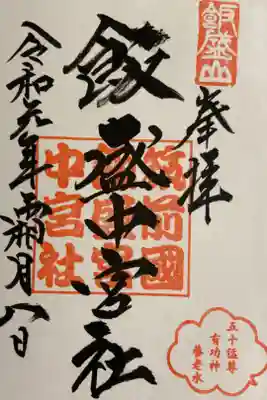 飯盛山
奉拝
飯盛中宮社
筑前國
飯盛山
中宮社
令和元年霜月八日
五十猛尊
有功神
養老水